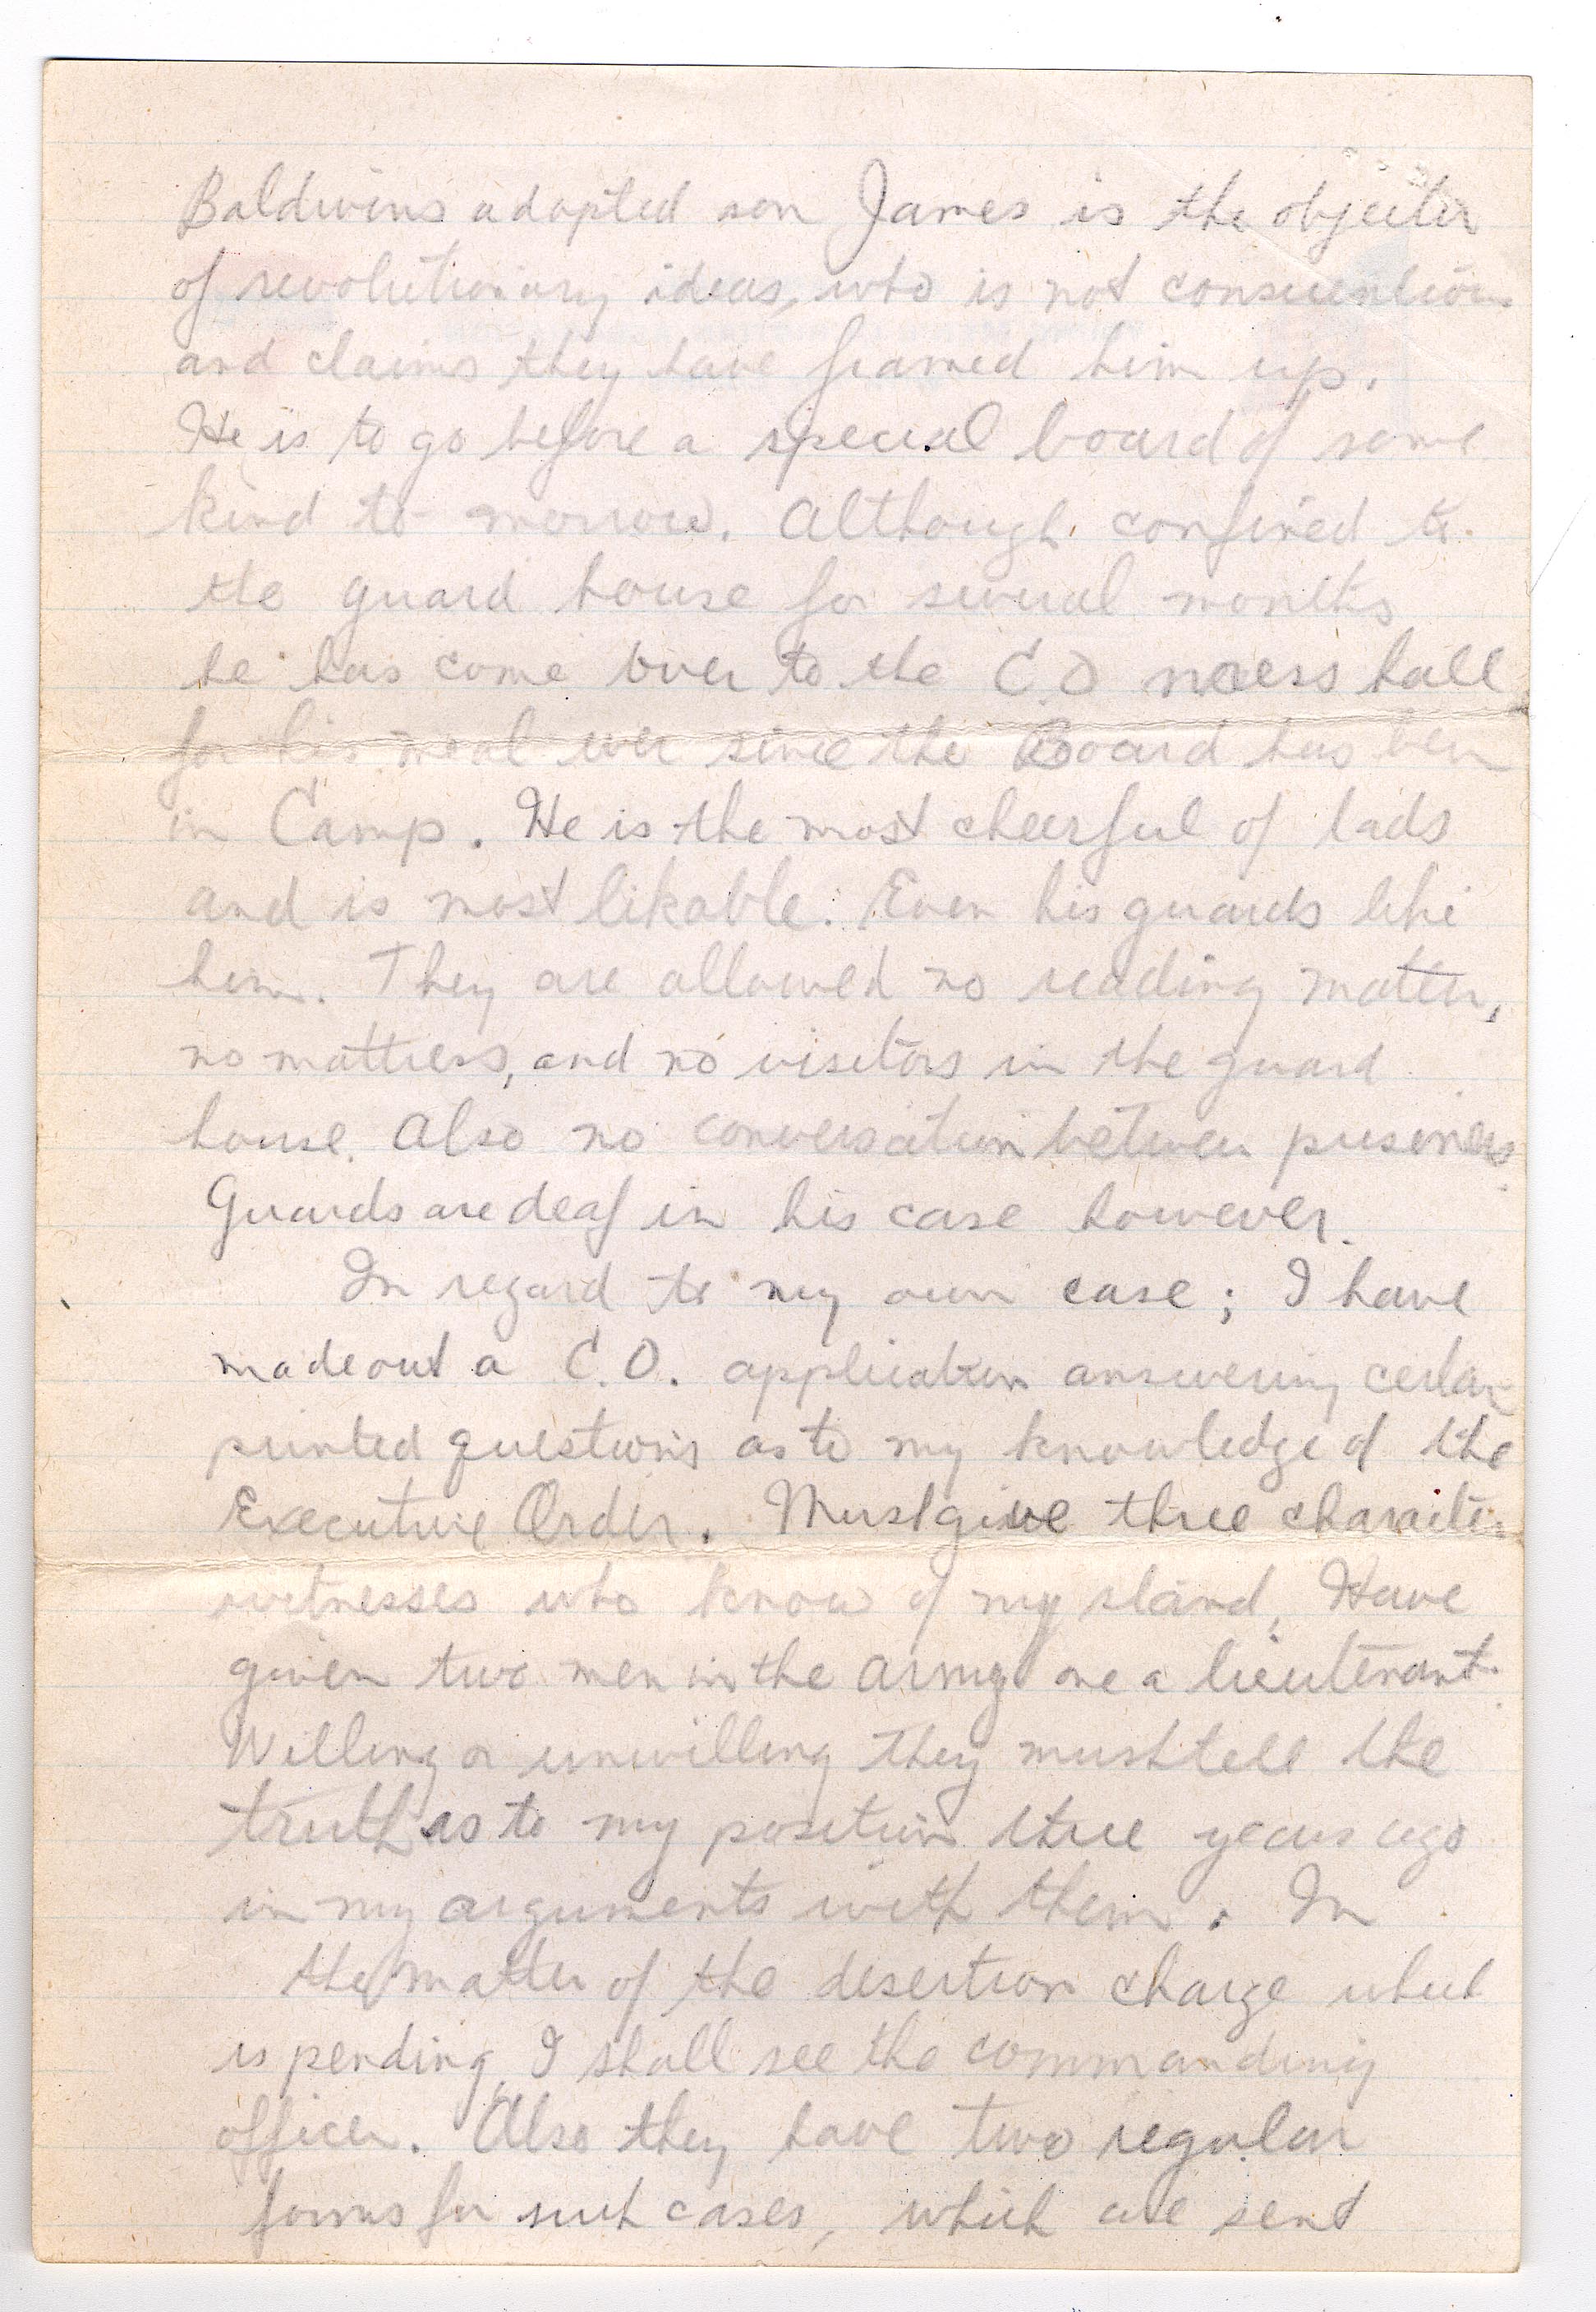 Baldwins adopted son James is the objecter
of revolutionary ideas, who is not conscientious
and claims they have framed him up.
He is to go before a special board of some
kind to-morrow. Although confined to
the guard house for several months
he has come over to the C.O mess hall
for his meal ever since the Board has been
in Camp. He is the most cheerful of lads
and is most likable. Even his guards like
him. They are allowed no reading matter,
no mattress, and no visitors in the guard
house. Also no conversation between prisoners
Guards are deaf in his case however.
In regard to my own case; I have
made out a C.O. application answering certain
printed questions as to my knowledge of the
Executive Order. Must give three character
witnesses who know of my stand, Have
given two men in the army one a lieutenant.
Willing or unwilling they must tell the
truth as to my position three years ago
in my arguments with them. In
the matter of the desertion charge which
is pending, I shall see the commanding
officer. Also they have two regular
forms for such cases, which are sent